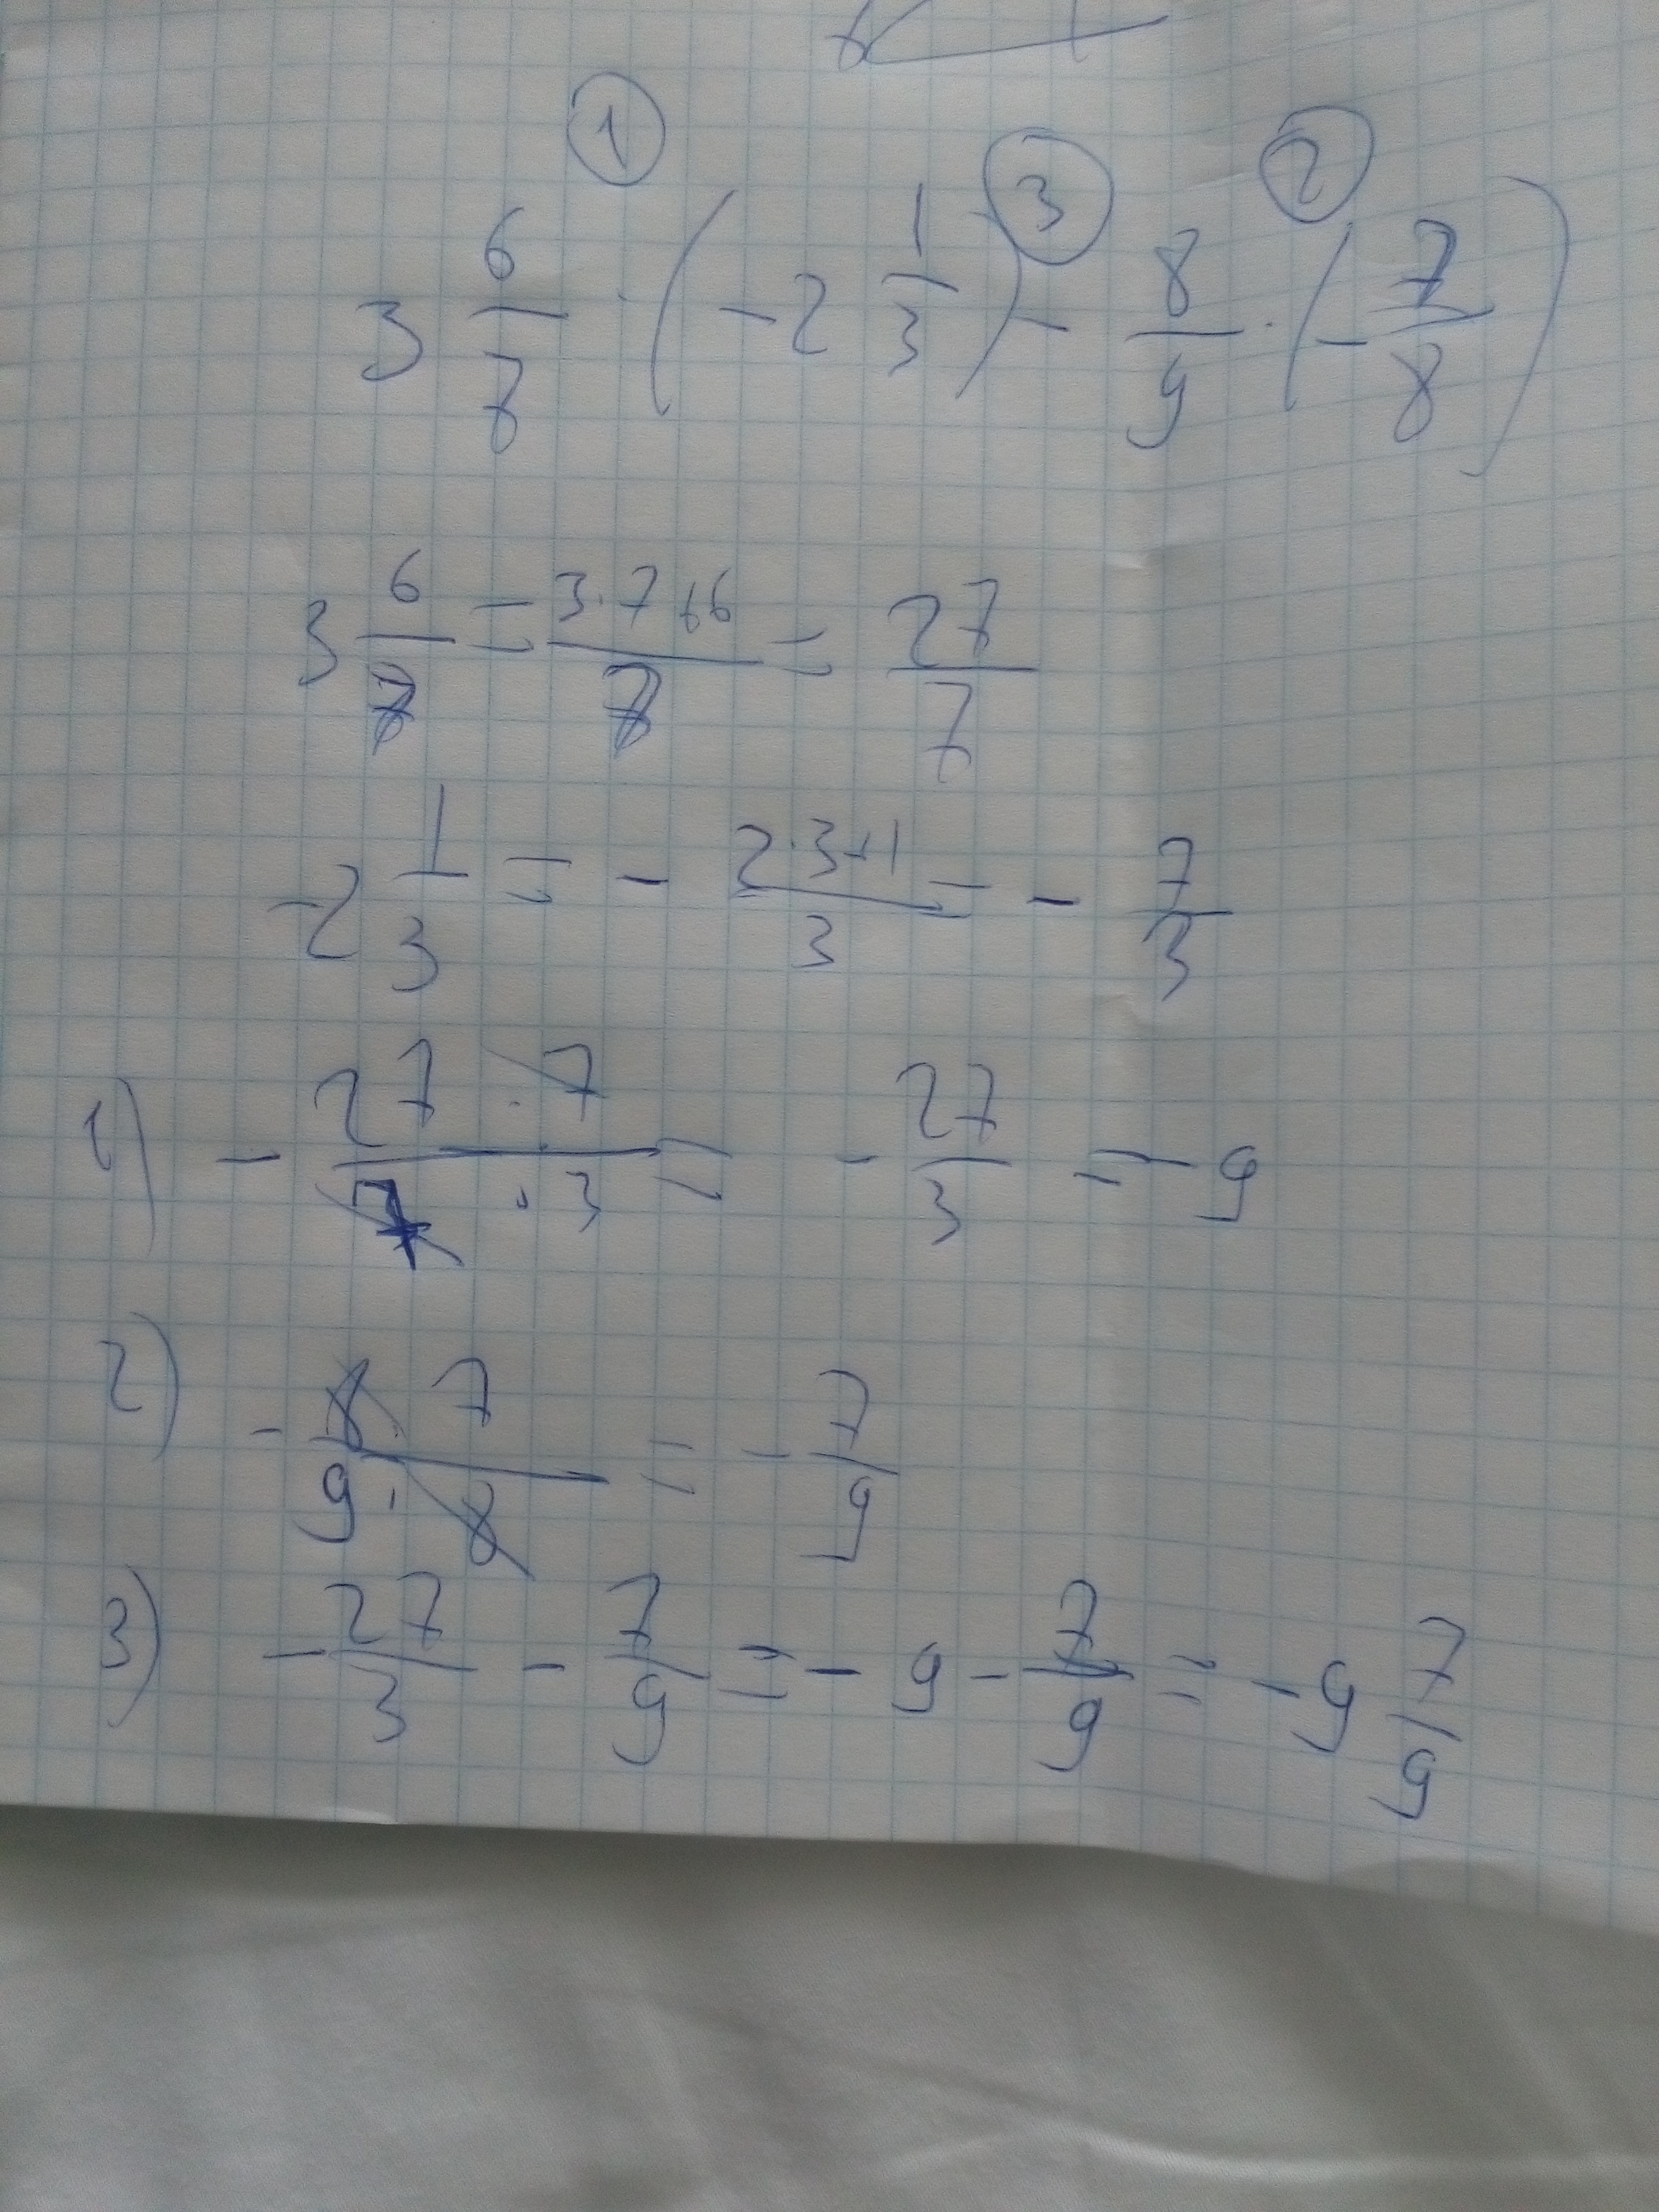 ① ③ ②
3 6/7 · (-2 1/3) - 8/9 · (-7/8)
3 6/7 = 3·7+6/7 = 27/7
-2 1/3 = - 2·3+1/3 = - 7/3
1) - 27·7/7·3 = - 27/3 = -9
2) - 8·7/9·8 = - 7/9
3) - 27/3 - 7/9 = - 9 - 7/9 = -9 7/9